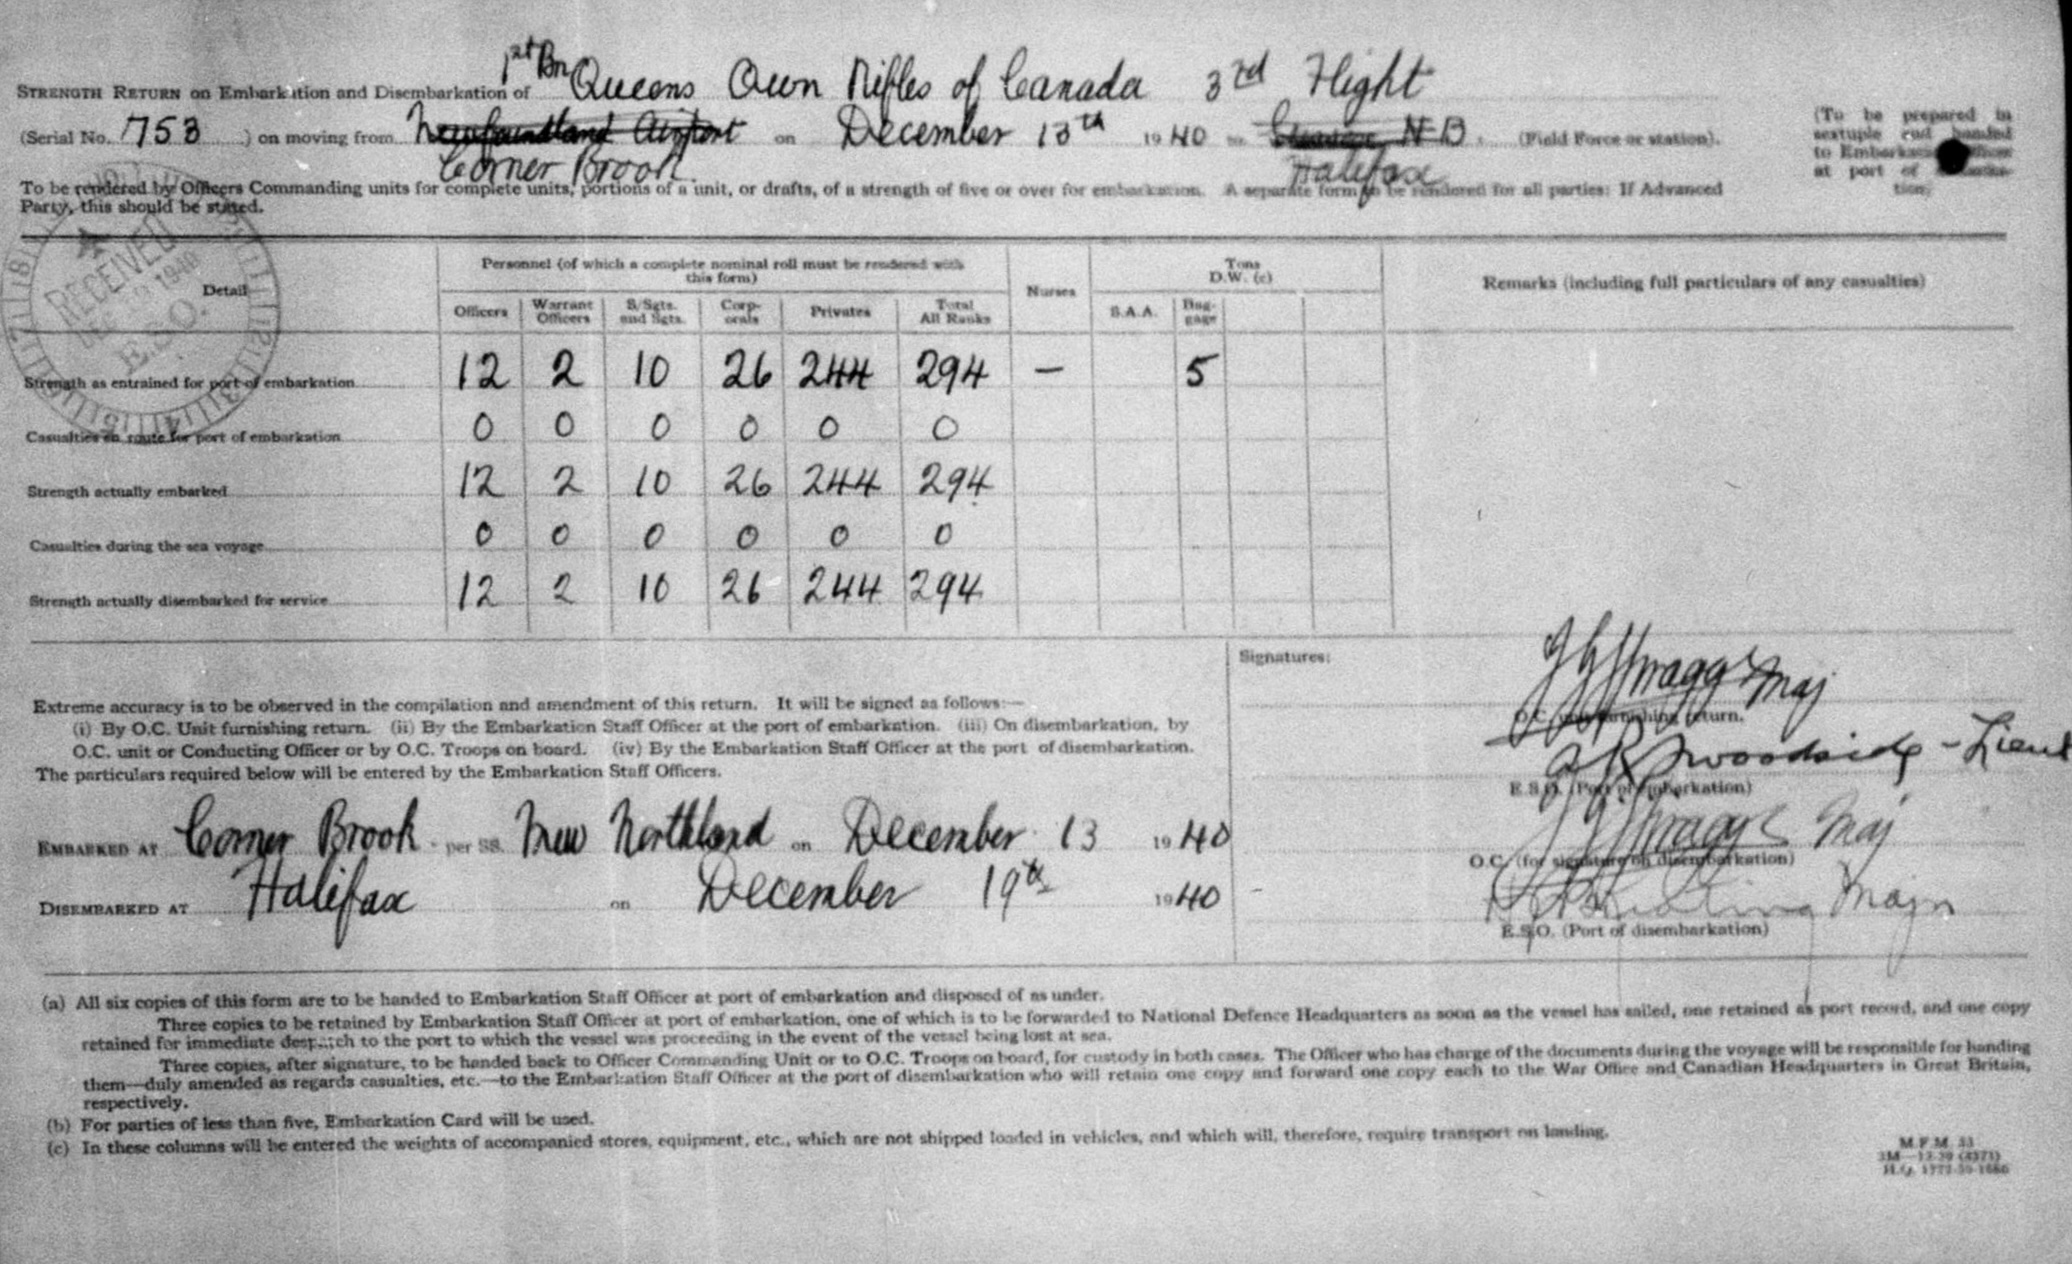 1st Bn Queens Own Rifles of Canada 3rd Flight
STRENGTH RETURN on Embarkation and Disembarkation of
(Serial No. 753 ) on moving from Newfoundland Airport on December 13th 1940 to N B (Field Force or station).
Corner Brook Halifax
(To be prepared in
sextuple and handed
to Embarkation Officer
at port of embarka-
tion)
To be rendered by Officers Commanding units for complete units, portions of a unit, or drafts, of a strength of five or over for embarkation. A separate form to be rendered for all parties: If Advanced
Party, this should be stated.
RECEIVED
DEC 1940
E.S.O.
Detail
Personnel (of which a complete nominal roll must be rendered with
this form)
Nurses
Tons
D.W. (c)
Remarks (including full particulars of any casualties)
Officers Warrant Officers S/Sgts. and Sgts. Corp-orals Privates Total All Ranks S.A.A. Bag-gage
Strength as entrained for port of embarkation 12 2 10 26 244 294 — 5
Casualties en route for port of embarkation 0 0 0 0 0 0
Strength actually embarked 12 2 10 26 244 294
Casualties during the sea voyage 0 0 0 0 0 0
Strength actually disembarked for service 12 2 10 26 244 294
Signatures:
Maj
O.C. unit furnishing return.
Woodside - Lieut
E.S.O. (Port of embarkation)
Maj
O.C. (for signature on disembarkation)
Major
E.S.O. (Port of disembarkation)
Extreme accuracy is to be observed in the compilation and amendment of this return. It will be signed as follows:—
(i) By O.C. Unit furnishing return. (ii) By the Embarkation Staff Officer at the port of embarkation. (iii) On disembarkation, by
O.C. unit or Conducting Officer or by O.C. Troops on board. (iv) By the Embarkation Staff Officer at the port of disembarkation.
The particulars required below will be entered by the Embarkation Staff Officers.
EMBARKED AT Corner Brook per SS. New Northland on December 13 1940
DISEMBARKED AT Halifax on December 19th 1940
(a) All six copies of this form are to be handed to Embarkation Staff Officer at port of embarkation and disposed of as under.
Three copies to be retained by Embarkation Staff Officer at port of embarkation, one of which is to be forwarded to National Defence Headquarters as soon as the vessel has sailed, one retained as port record, and one copy
retained for immediate despatch to the port to which the vessel was proceeding in the event of the vessel being lost at sea.
Three copies, after signature, to be handed back to Officer Commanding Unit or to O.C. Troops on board, for custody in both cases. The Officer who has charge of the documents during the voyage will be responsible for handing
them—duly amended as regards casualties, etc.—to the Embarkation Staff Officer at the port of disembarkation who will retain one copy and forward one copy each to the War Office and Canadian Headquarters in Great Britain,
respectively.
(b) For parties of less than five, Embarkation Card will be used.
(c) In these columns will be entered the weights of accompanied stores, equipment, etc., which are not shipped loaded in vehicles, and which will, therefore, require transport on landing.
M.F.M. 33
3M—12-39 (4371)
H.Q. 1772-39-1686